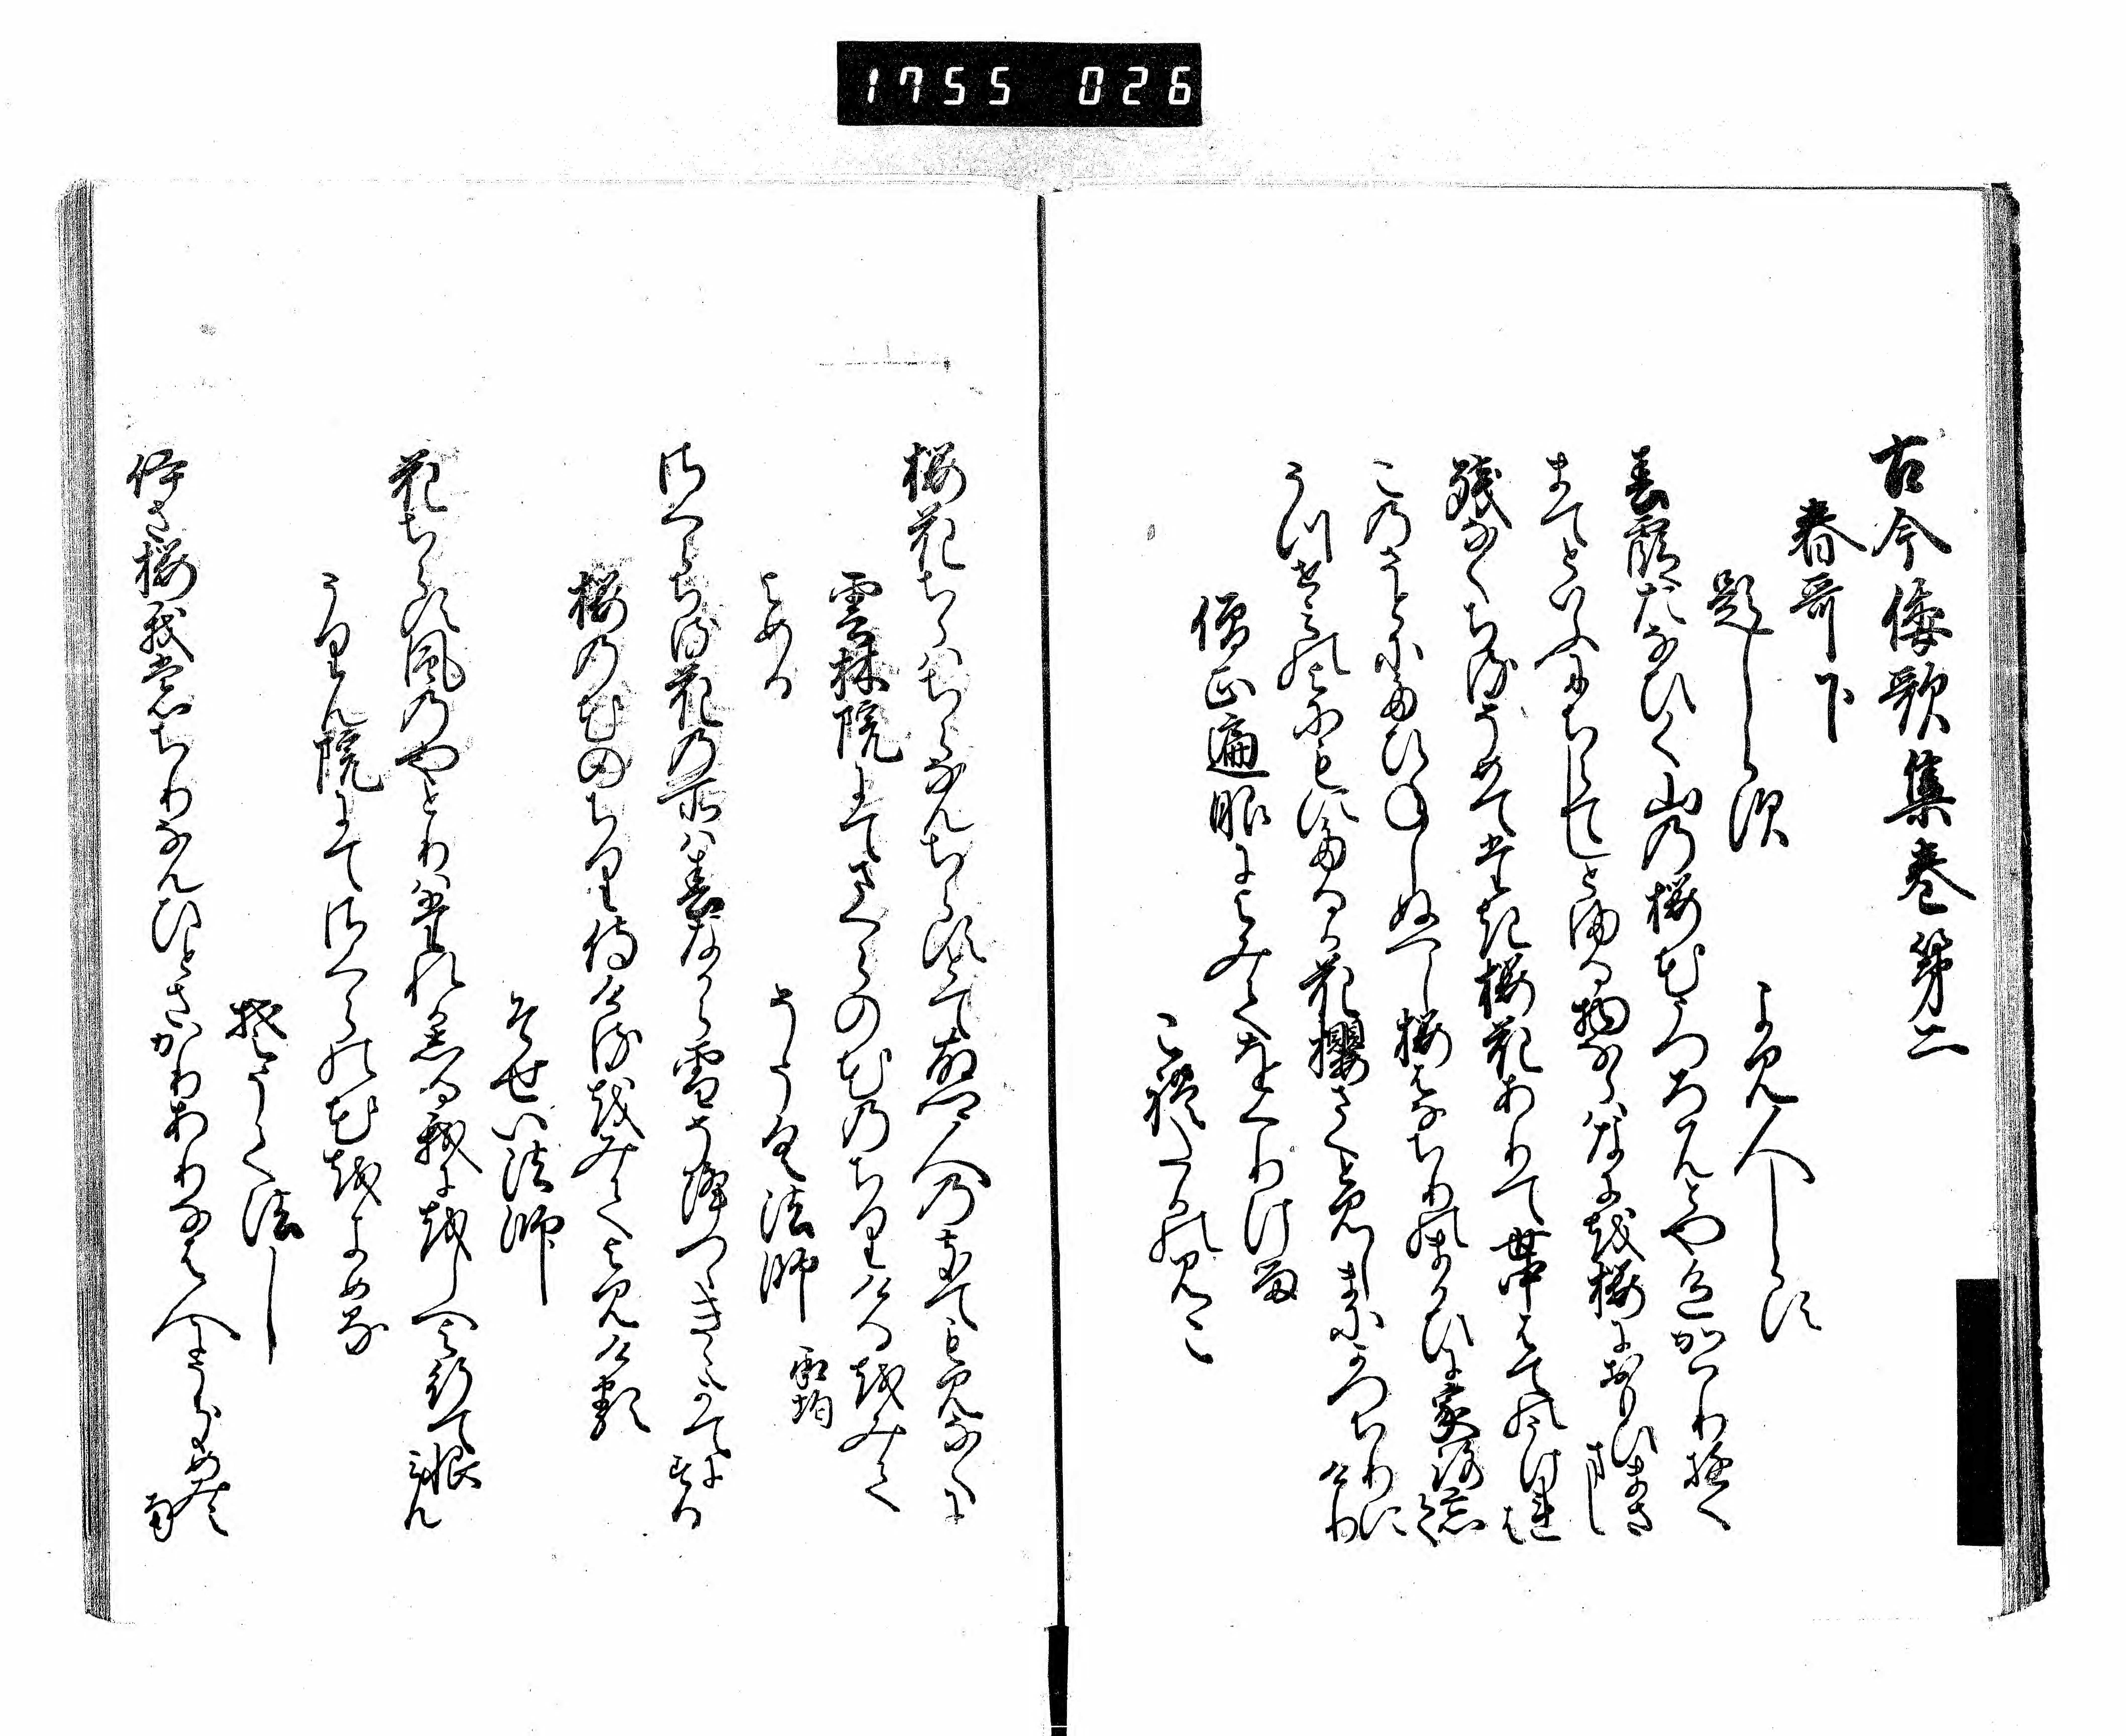 1755 026
古今倭歌集巻第二
春哥下
題しらす
よみ人しらす
春霞たなひく山の桜花うつろはんとや色かはり行く
まてといふにちらてしとまる物ならはなにを桜におもひまさまし
残なくちるそめてたき桜花ありて世中はての うけれは
この さとにたひねしぬへし桜はなちりのまかひに家路忘て
うつせみの世にもにたるか花櫻さくと見しまにかつちりにけり
僧正遍昭によみてをくりける
これたかのみこ
桜花ちらはちらなんちらすとて故さと人のきても見なくに
雲林院にてさくらの花のちりけるをみて
よめる
そうく法師 承均
桜ちる花の所は春なから雪そ降つゝきえかてにする
桜の花のちり侍けるをみてよみける
そせい法師
花ちらす風のやとりは誰かしる我にをしへよ行て恨みん
うりん院にて桜の花をよめる
そうく法し
いさ桜我もちりなんひとさかりありなは人にうきめみえなん